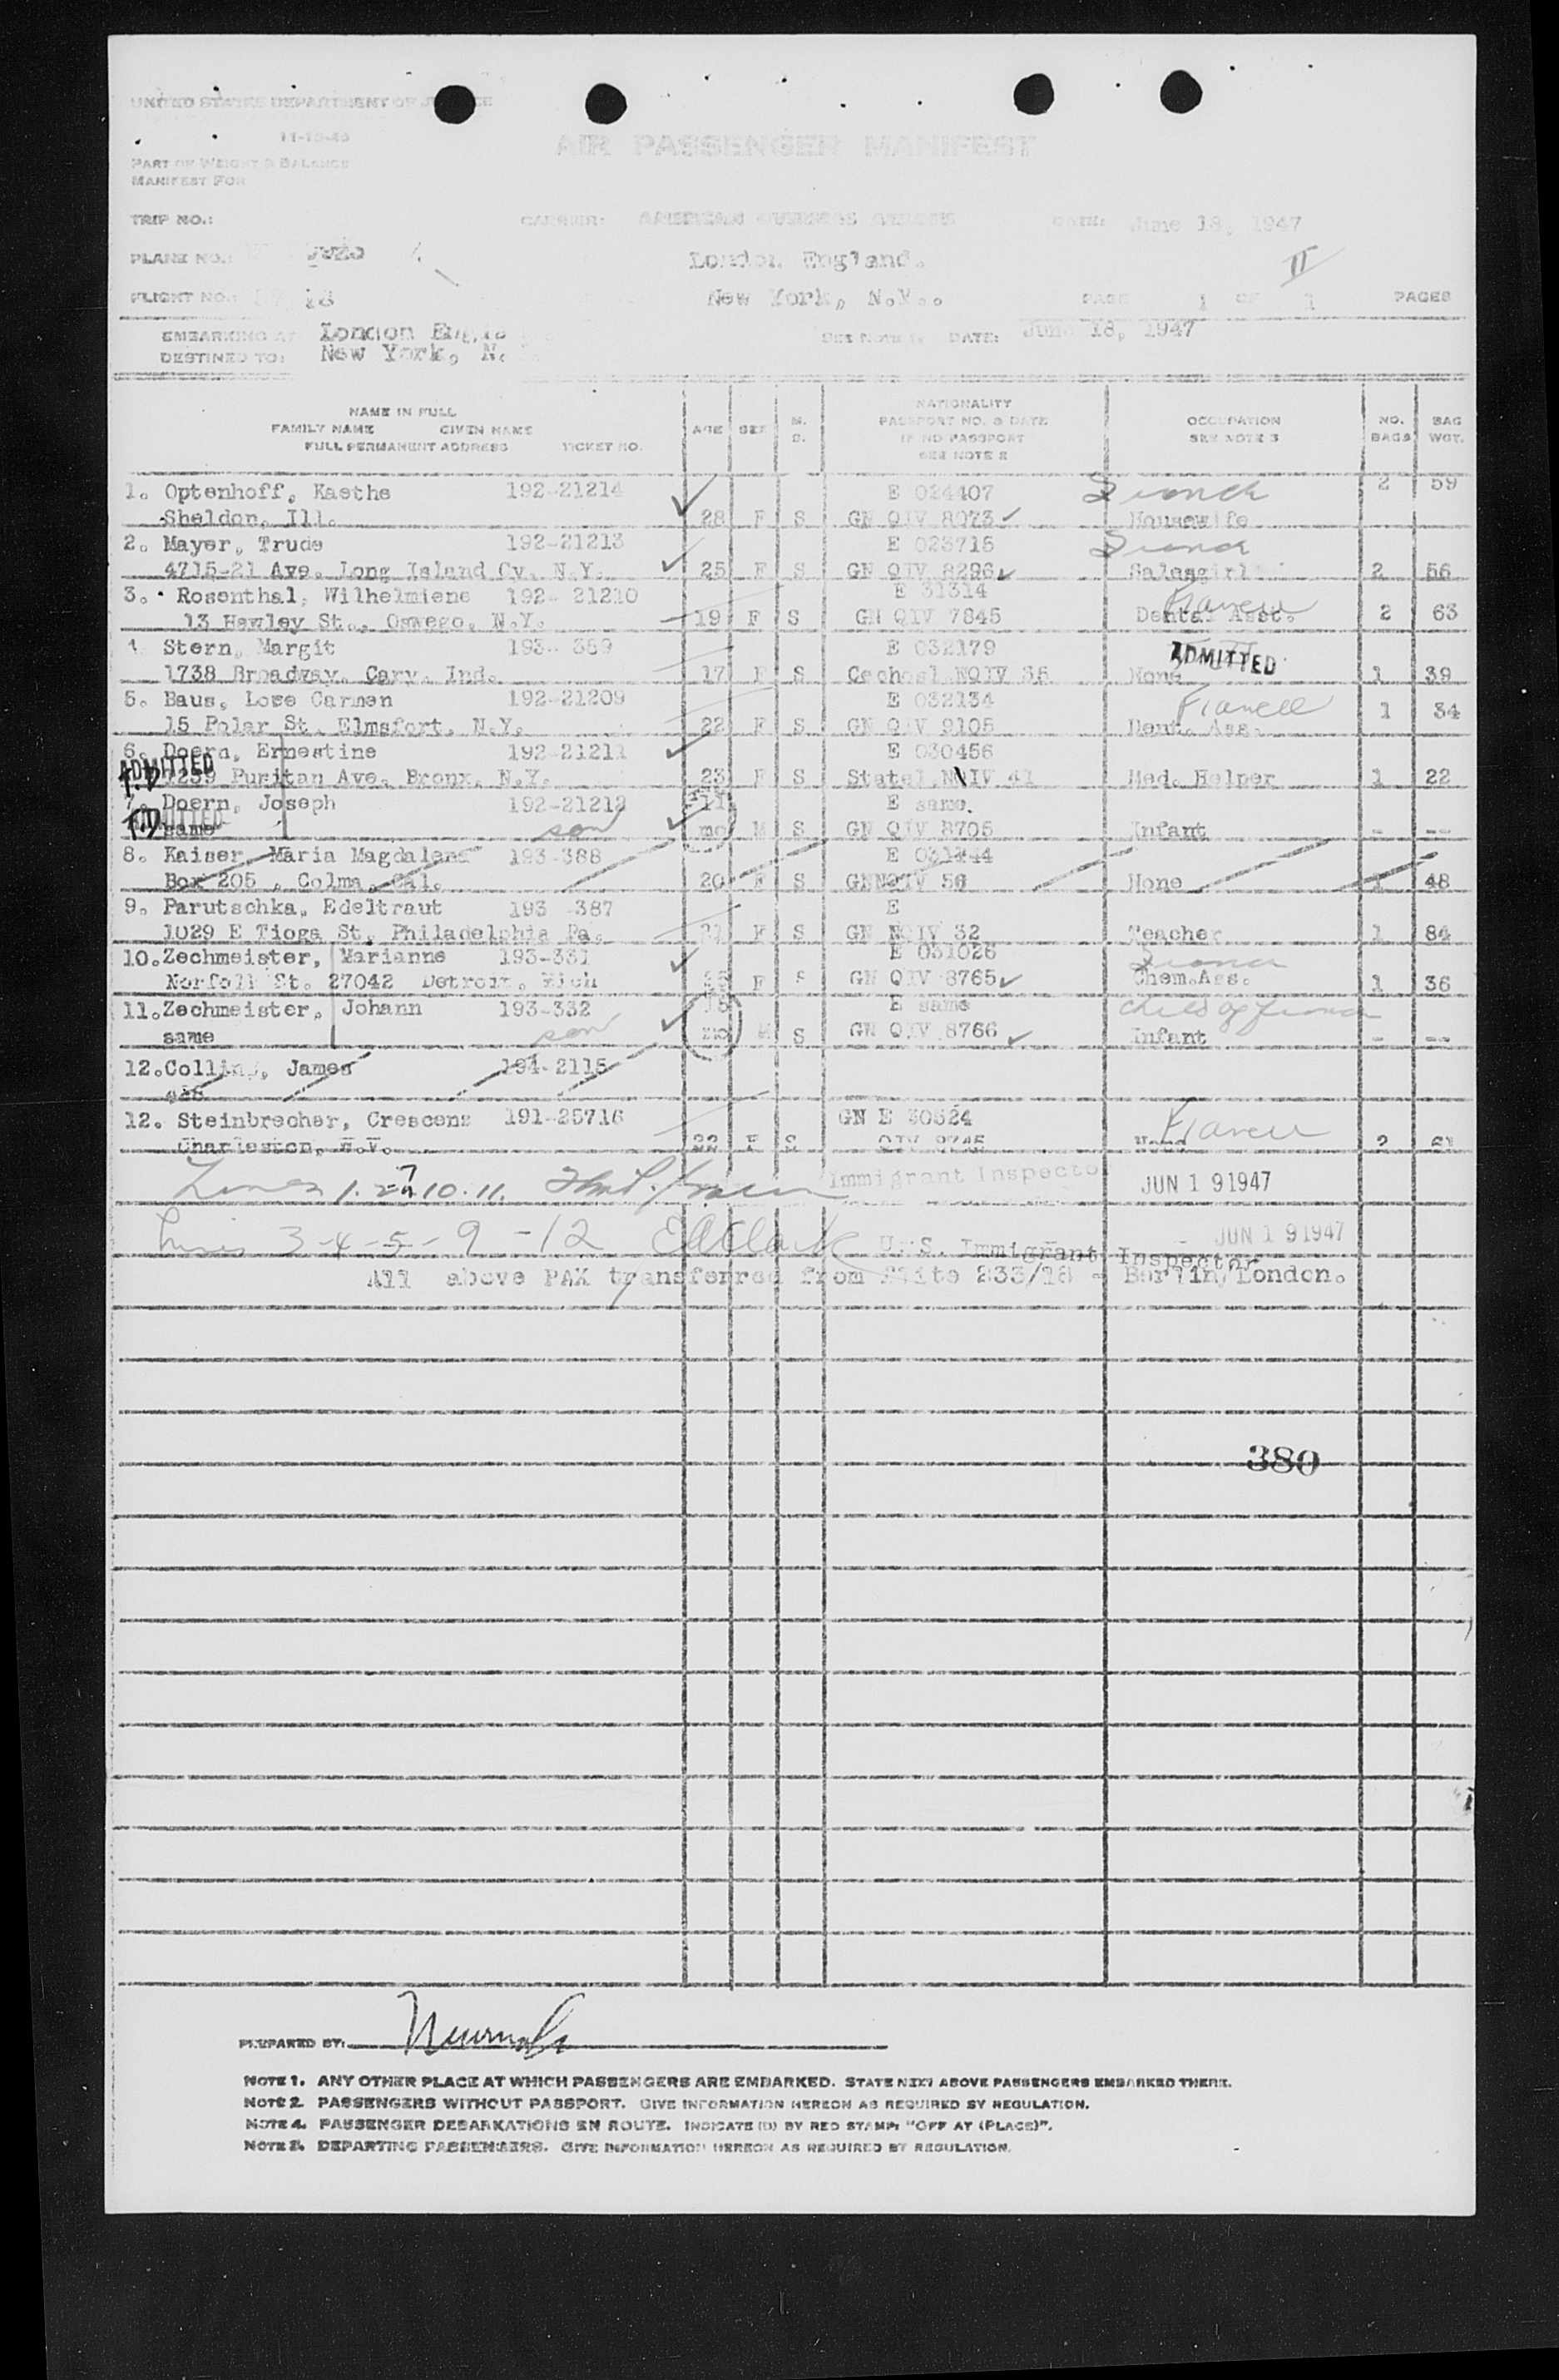 UNITED STATES DEPARTMENT OF JUSTICE
11-15-45
AIR PASSENGER MANIFEST
PART OF WEIGHT & BALANCE
MANIFEST FOR
TRIP NO.: CARRIER: AMERICAN OVERSEAS AIRLINES DATE: June 18, 1947
PLANE NO.: London England. II
FLIGHT NO.: 18 New York, N.Y.. PAGE 1 OF 1 PAGES
EMBARKING AT London
DESTINED TO: New York, N. SEE NOTE 1. DATE: June 18, 1947
NAME IN FULL
FAMILY NAME GIVEN NAME
FULL PERMANENT ADDRESS TICKET NO.
AGE SEX M. S.
NATIONALITY
PASSPORT NO. & DATE
IF NO PASSPORT
SEE NOTE 2
OCCUPATION
SEE NOTE 3
NO. BAGS
BAG WGT.
1. Optenhoff, Kaethe 192-21214 E 024407 2 59
Sheldon, Ill. 28 F S GN QIV 8073 Housewife
2. Mayer, Trude 192-21213 E 023715
4715-21 Ave. Long Island Cy. N.Y. 25 F S GN QIV 8296 Salesgirl 2 56
3. Rosenthal, Wilhelmiene 192- 21210 E 31314 Fiancee
13 Hawley St., Oswego, N.Y. 19 F S GN QIV 7845 Dental Asst. 2 63
4 Stern, Margit 193- 389 E 032179 ADMITTED
1738 Broadway, Gary, Ind. 17 F S Cechosl NQIV 35 None 1 39
5. Baus, Lore Carmen 192-21209 E 032134 Fiancee
15 Polar St. Elmsfort, N.Y. 22 F S GN QIV 9105 Dent. Ass. 1 34
6. Doern, Ernestine 192-21211 E 030456
ADMITTED 1259 Puritan Ave. Bronx, N.Y. 23 F S Statel NQIV 41 Med. Helper 1 22
7. Doern, Joseph 192-21212 11 E same.
ADMITTED same son mo M S GN QIV 8705 Infant - --
8. Kaiser Maria Magdalena 193-388 E 031444
Box 205 , Colma, Cal. 20 F S GNNQIV 56 None 1 48
9. Parutschka, Edeltraut 193 -387 E
1029 E Tioga St. Philadelphia Pa. 21 F S GN NQIV 32 Teacher 1 84
10. Zechmeister, Marianne 193-331 E 031026
Norfolk St. 27042 Detroit, Mich F S GN QIV 8765 Chem.Ass. 1 36
11. Zechmeister, Johann 193-332 E same child of fiance
same son mo M S GN QIV 8766 Infant - --
12. Collins, James 194-2115
12. Steinbrecher, Crescenz 191-25716 GN E 30524 Fiancee
Charleston, W.V. 22 F S QIV 8745 None 2 61
Lines 1. 2 7 10. 11. Immigrant Inspector JUN 19 1947
Lines 3-4-5-9-12 EAClark U.S. Immigrant Inspector JUN 19 1947
All above PAX transferred from Flite 233/18 - Berlin/London.
380
PREPARED BY:
NOTE 1. ANY OTHER PLACE AT WHICH PASSENGERS ARE EMBARKED. STATE NEXT ABOVE PASSENGERS EMBARKED THERE.
NOTE 2. PASSENGERS WITHOUT PASSPORT. GIVE INFORMATION HEREON AS REQUIRED BY REGULATION.
NOTE 4. PASSENGER DEBARKATIONS EN ROUTE. INDICATE (D) BY RED STAMP: "OFF AT (PLACE)".
NOTE 3. DEPARTING PASSENGERS. GIVE INFORMATION HEREON AS REQUIRED BY REGULATION.